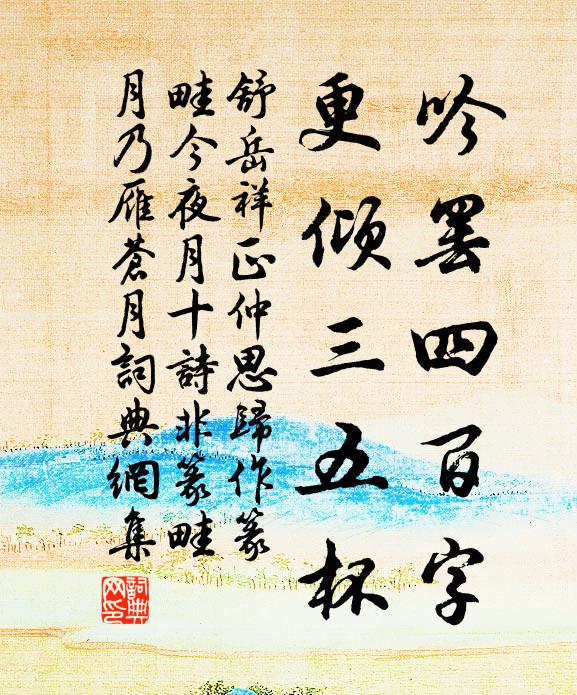 吟罢四百字
更倾三五杯
舒岳祥正仲思歸作篆
畦今夜月十詩非篆畦
月乃雁蒼月詞典網集
詞典
网印